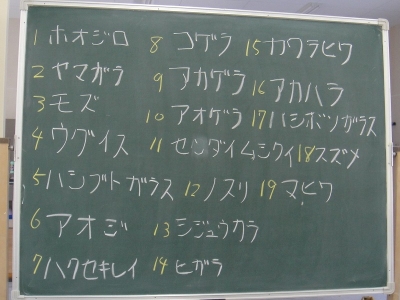 1 ホオジロ
2 ヤマガラ
3 モズ
4 ウグイス
5 ハシブトガラス
6 アオジ
7 ハクセキレイ
8 コゲラ
9 アカゲラ
10 アオゲラ
11 センダイムシクイ
12 ノスリ
13 シジュウカラ
14 ヒガラ
15 カワラヒワ
16 アカハラ
17 ハシボソガラス
18 スズメ
19 マヒワ